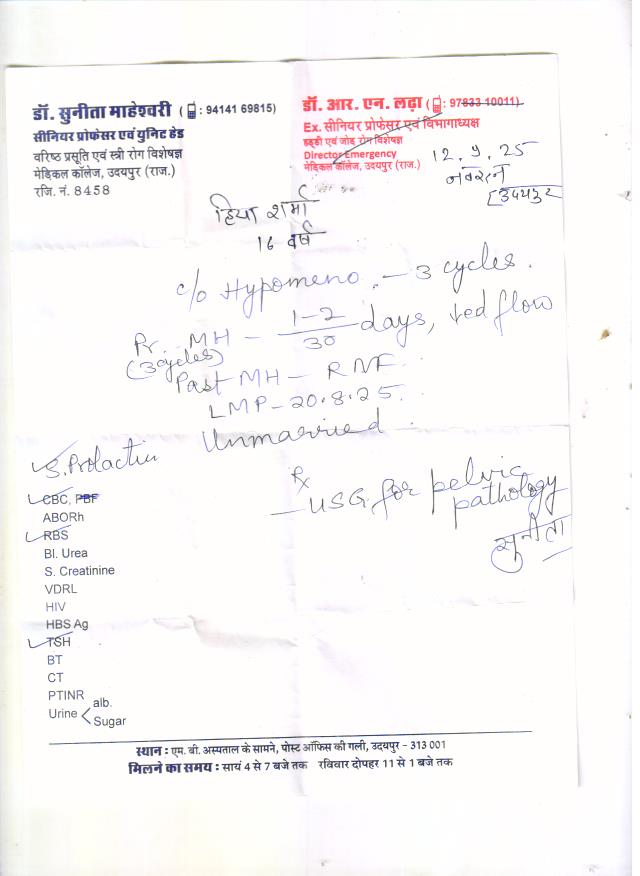 डॉ. सुनीता माहेश्वरी ( : 94141 69815)
सीनियर प्रोफेसर एवं युनिट हेड
वरिष्ठ प्रसूति एवं स्त्री रोग विशेषज्ञ
मेडिकल कॉलेज, उदयपुर (राज.)
रजि. नं. 8458
डॉ. आर. एन. लढ़ा ( : 97833 10011)
Ex. सीनियर प्रोफेसर एवं विभागाध्यक्ष
हड्डी एवं जोड़ रोग विशेषज्ञ
Director Emergency
मेडिकल कॉलेज, उदयपुर (राज.)
12.9.25
उदयपुर
हिया शर्मा
16 वर्ष
c/o Hypomeno. - 3 cycles.
Pr. MH - 1-2/30 days, red flow
(3 cycles)
Past MH - RNF
LMP - 20.8.25.
Unmarried.
S. Prolactin
Rx
- USG for pelvic
pathology
सुनीता
CBC, PBF
ABORh
RBS
Bl. Urea
S. Creatinine
VDRL
HIV
HBS Ag
TSH
BT
CT
PTINR
Urine < alb.
Sugar
स्थान : एम. बी. अस्पताल के सामने, पोस्ट ऑफिस की गली, उदयपुर - 313 001
मिलने का समय : सायं 4 से 7 बजे तक रविवार दोपहर 11 से 1 बजे तक